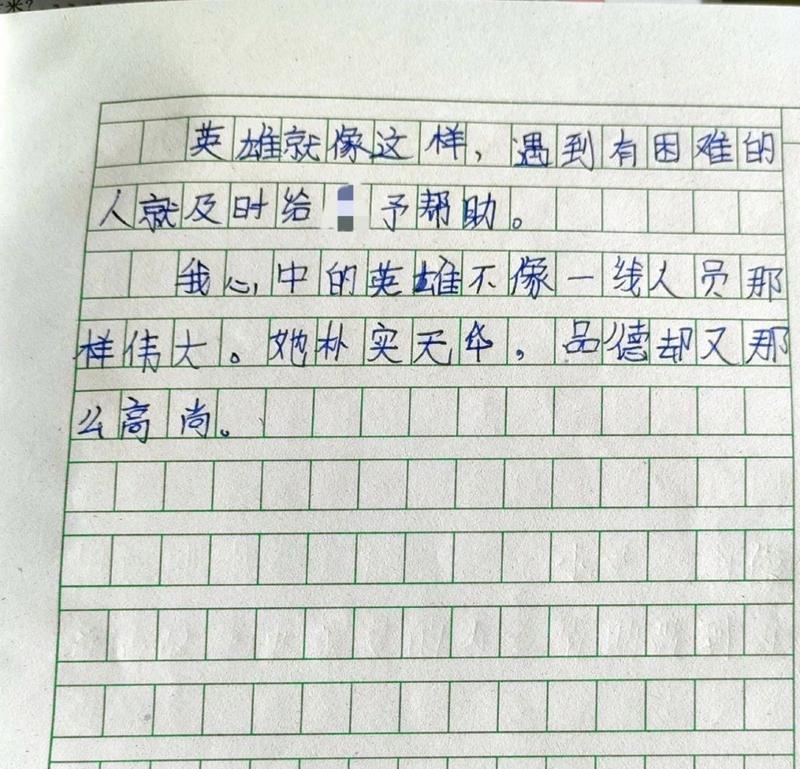 英雄就像这样，遇到有困难的
人就及时给予帮助。
我心中的英雄不像一线人员那
样伟大。她朴实无华，品德却又那
么高尚。